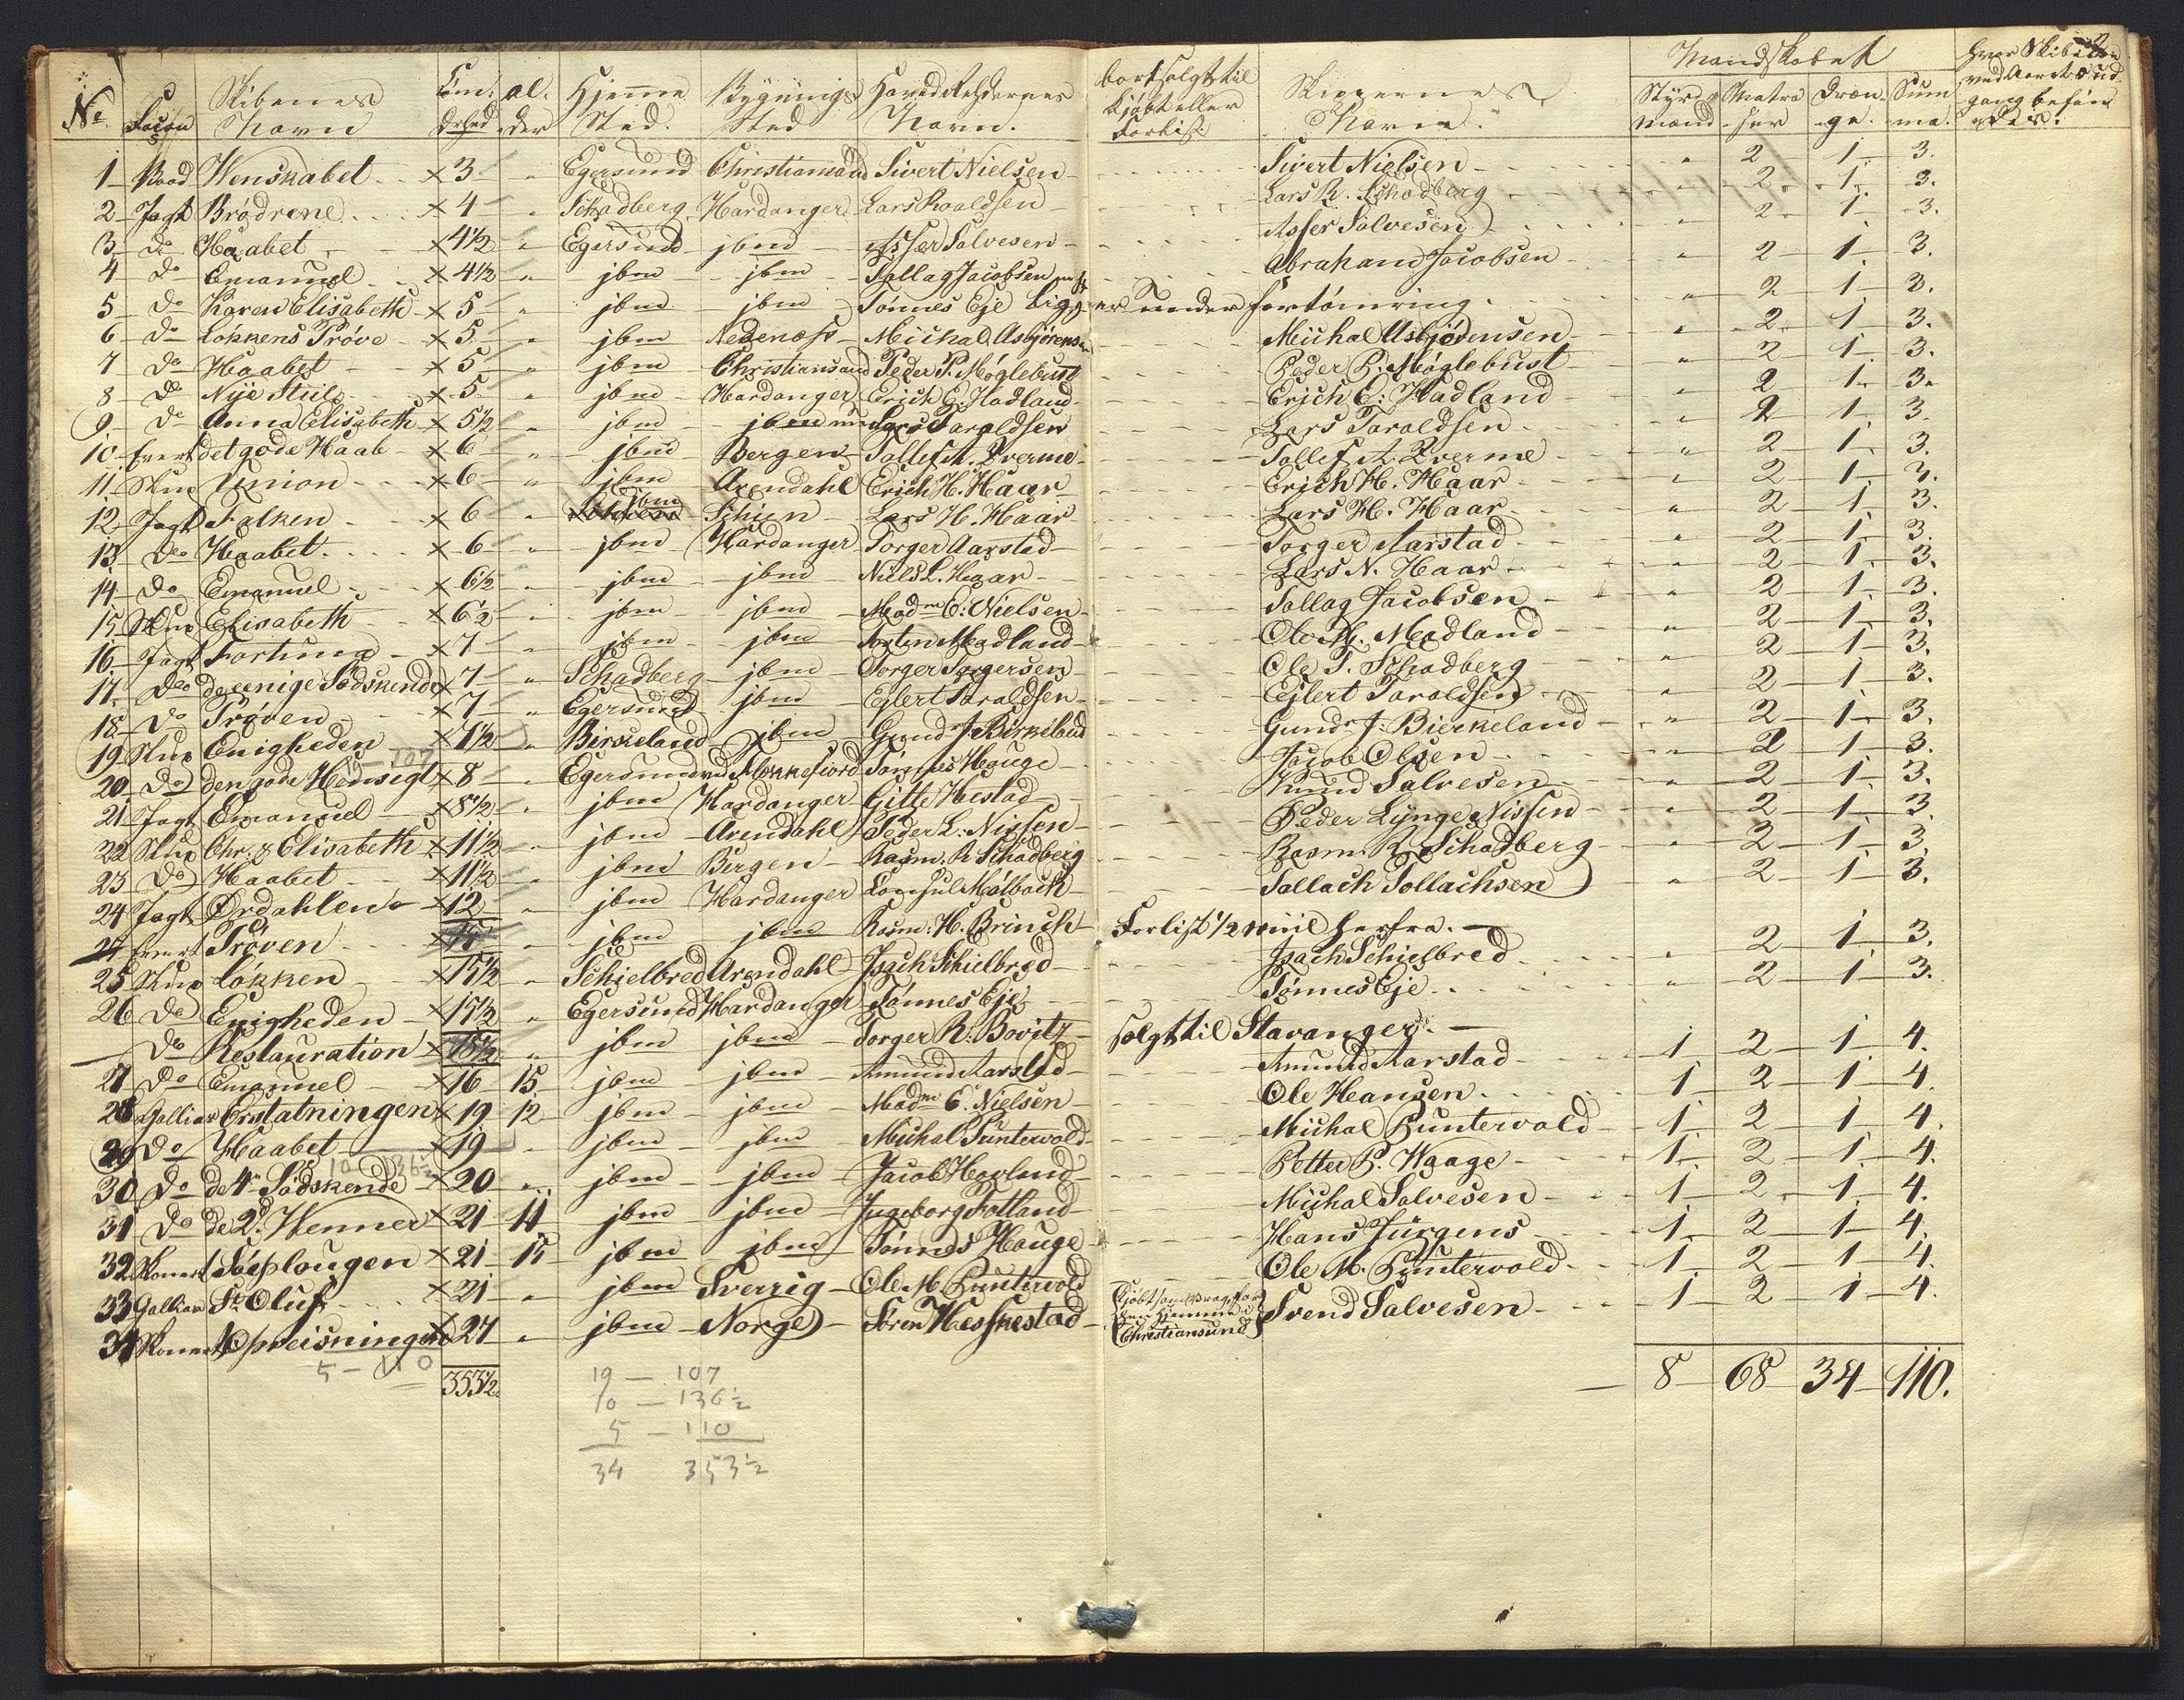 2
No Facon Skibenes Navn Com: Drhed al. der Hjemme Sted. Bygnings Sted Hoved Rhedernes Navn. bortsolgt til kjøbt eller Forlist Skippernes Navn. Mandskabet Styrmænd Matroser Drenge. Summa. hvor Skibene ved Aarets Udgang befandtes.
1 Baad Wenskabet x 3 " Egersund Christiansand Sivert Nielsen Sivert Nielsen " 2 1 3.
2 Jagt Brødrene x 4 " Schadberg Hardanger Lars Roaldsen Lars R. Schadberg " 2 1 3.
3 do Haabet x 4½ " Egersund jbm Asser Salvesen Asser Salvesen " 2 1 3.
4 do Emanuel x 4½ " jbm jbm Tallag Jacobsen Abraham Jacobsen " 2 1 3.
5 do Karen Elisabeth x 5 " jbm jbm Tønnes Eje ligger under fortømring " 2 1 3.
6 do Løkkens Prøve x 5 " jbm Nedenæs Michal Asbjørensen Michal Asbjørensen " 2 1 3.
7 do Haabet x 5 " jbm Christiansand Peder P. Møglebust Peder P. Møglebust " 2 1 3.
8 do Nije Stiil x 5 " jbm Hardanger Erich E. Hadland Erich E: Hadland " 2 1 3.
9 do Anna Elisabeth x 5½ " jbm jbm Lars Taraldsen Lars Taraldsen " 2 1 3.
10 Evert det gode Haab x 6 " jbm Bergen Tollef A. Qverme Tollef A. Qverme " 2 1 3.
11 Slup Union x 6 " jbm Arendahl Erich H. Haar Erich H. Haar " 2 1 3.
12 Jagt Falken x 6 " jbm Schien Lars H. Haar Lars H. Haar " 2 1 3.
13 do Haabet x 6 " jbm Hardanger Torger Aarstad Torger Aarstad " 2 1 3.
14 do Emanuel x 6½ " jbm jbm Niels L. Haar Lars N. Haar " 2 1 3.
15 Slup Elisabeth x 6½ " jbm jbm Madme E: Nielsen Tallag Jacobsen " 2 1 3.
16 Jagt Fortuna x 7 " jbm jbm Torsten Madland Ole M. Madland " 2 1 3.
17 do de eenige Sødskende x 7 " Schadberg jbm Torger Torgersen Ole T. Schadberg " 2 1 3.
18 do Prøven x 7 " Egersund jbm Ejlert Taraldsen Ejlert Taraldsen " 2 1 3.
19 Slup Enigheden x 7½ " Birkeland jbm Gund J. Birkeland Gundr J. Bierkeland " 2 1 3.
19 — 107
20 do den gode Hensigt x 8 " Egersund Flekkefiord Tønnes Hauge Jacob Olsen " 2 1 3.
21 Jagt Emanuel x 8½ " jbm Hardanger Gitte Hestad Knud Salvesen " 2 1 3.
22 Slup Chr. & Elisabeth x 11½ " jbm Arendahl Peder L: Nissen Peder Lynge Nissen " 2 1 3.
23 do Haabet x 11½ " jbm Bergen Rasm: R. Schadberg Rasm. R. Schadberg " 2 1 3.
24 Jagt Ørdahlen x 12 " jbm Hardanger Consul Malbach Tallach Tollachsen " 2 1 3.
Evert Prøven x " jbm jbm Rasm: H. Brinch Forlist ½ Miil herfra.
25 Slup Løkken x 15½ " Schielbred Arendahl Isach Schielbred Isach Schielbred " 2 1 3.
26 do Enigheden x 15½ " Egersund Hardanger Tønnes Eje Tønnes Eje " 2 1 3.
— do Restauration x 18½ " jbm jbm Torger R. Bovitz solgt til Stavanger.
27 do Emanuel x 16 15 jbm jbm Amund Aarstad Amund Aarstad 1 2 1 4.
28 Gallias Erstatningen x 19 12 jbm jbm Madme E. Nielsen Ole Hansen 1 2 1 4.
29 do Haabet x 19 " jbm jbm Michal Puntervold Michal Puntervold 1 2 1 4.
10 — 136½
30 do de 4re Sødskende x 20 " jbm jbm Jacob Hovland Petter P. Waage 1 2 1 4.
31 do de 2de Wenner x 21 11 jbm jbm Ingeborg Fotland Michal Salvesen 1 2 1 4.
32 Skonert Søeplougen x 21 15 jbm jbm Tønnes Hauge Hans Jürgens 1 2 1 4.
33 Gallias St. Oluf x 21 " jbm Sverrig Ole M. Puntervold Ole M. Puntervold 1 2 1 4.
34 Skonert Opreisningen x 27 " jbm Norge Søren Hessnestad Kjøbt som Christiansund Svend Salvesen 1 2 1 4.
5 — 110
353½ 8 68 34 110.
19 — 107
10 — 136½
5 — 110
34 353½